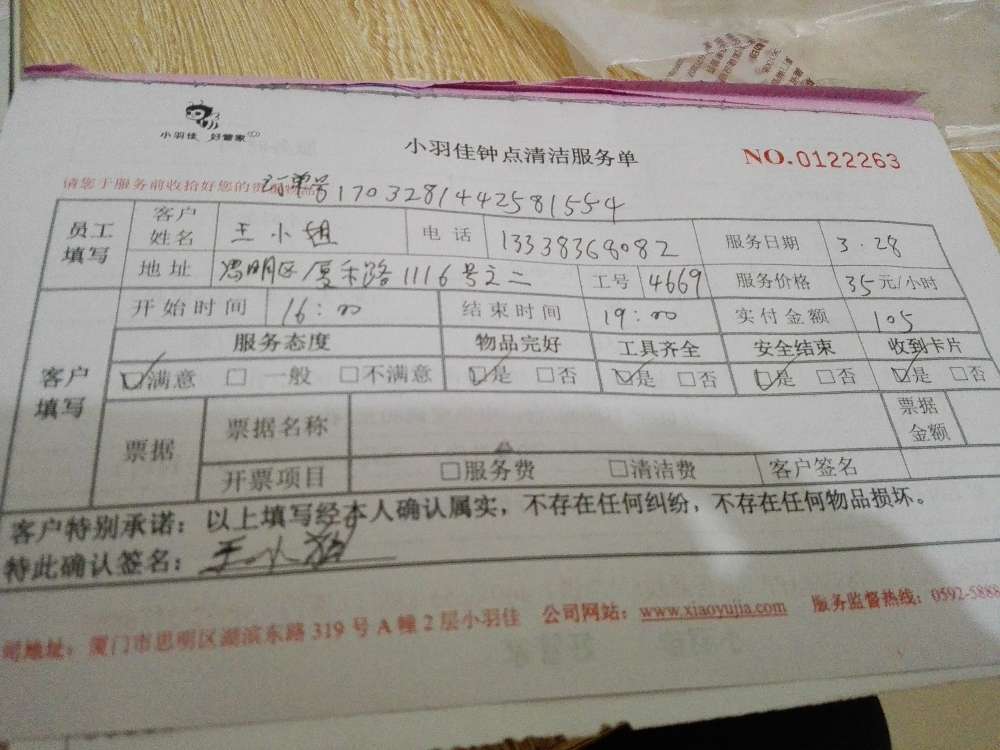 小羽佳 好管家
小羽佳钟点清洁服务单
NO.0122263
请您于服务前收拾好您的贵重物品
订单号1703281442581554
员工填写 客户姓名 王小姐 电话 13338368082 服务日期 3.28
地址 思明区厦禾路1116号之二 工号 4669 服务价格 35元/小时
客户填写 开始时间 16:00 结束时间 19:00 实付金额 105
服务态度 物品完好 工具齐全 安全结束 收到卡片
☑满意 □一般 □不满意 ☑是 □否 ☑是 □否 ☑是 □否 ☑是 □否
票据 票据名称 票据金额
开票项目 □服务费 □清洁费 客户签名
客户特别承诺：以上填写经本人确认属实，不存在任何纠纷，不存在任何物品损坏。
特此确认签名：王小
司地址：厦门市思明区湖滨东路319号A幢2层小羽佳 公司网站：www.xiaoyujia.com 服务监督热线：0592-5888